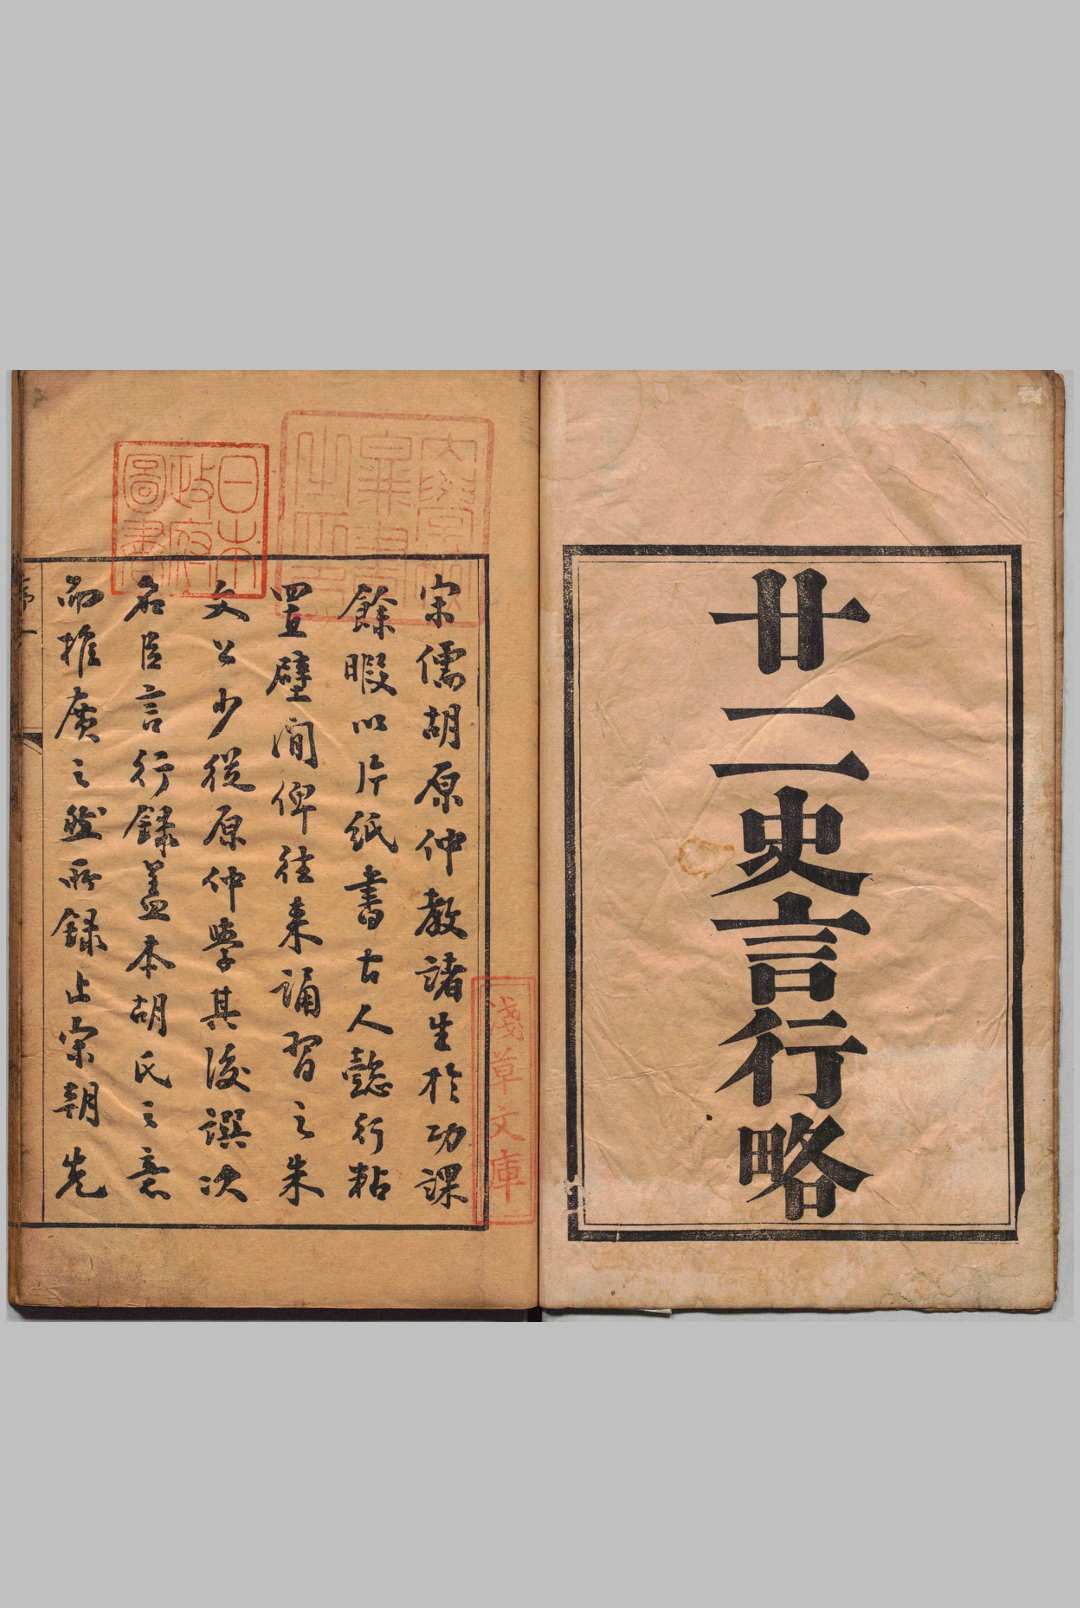 廿二史言行略
宋儒胡原仲教諸生於功課
餘暇以片紙書古人懿行粘
置壁间俾往来誦習之朱
文公少從原仲學其後譔次
名臣言行録蓋本胡氏之意
而推廣之然所録止宋朝先
日本
政府
圖書
淺草文庫